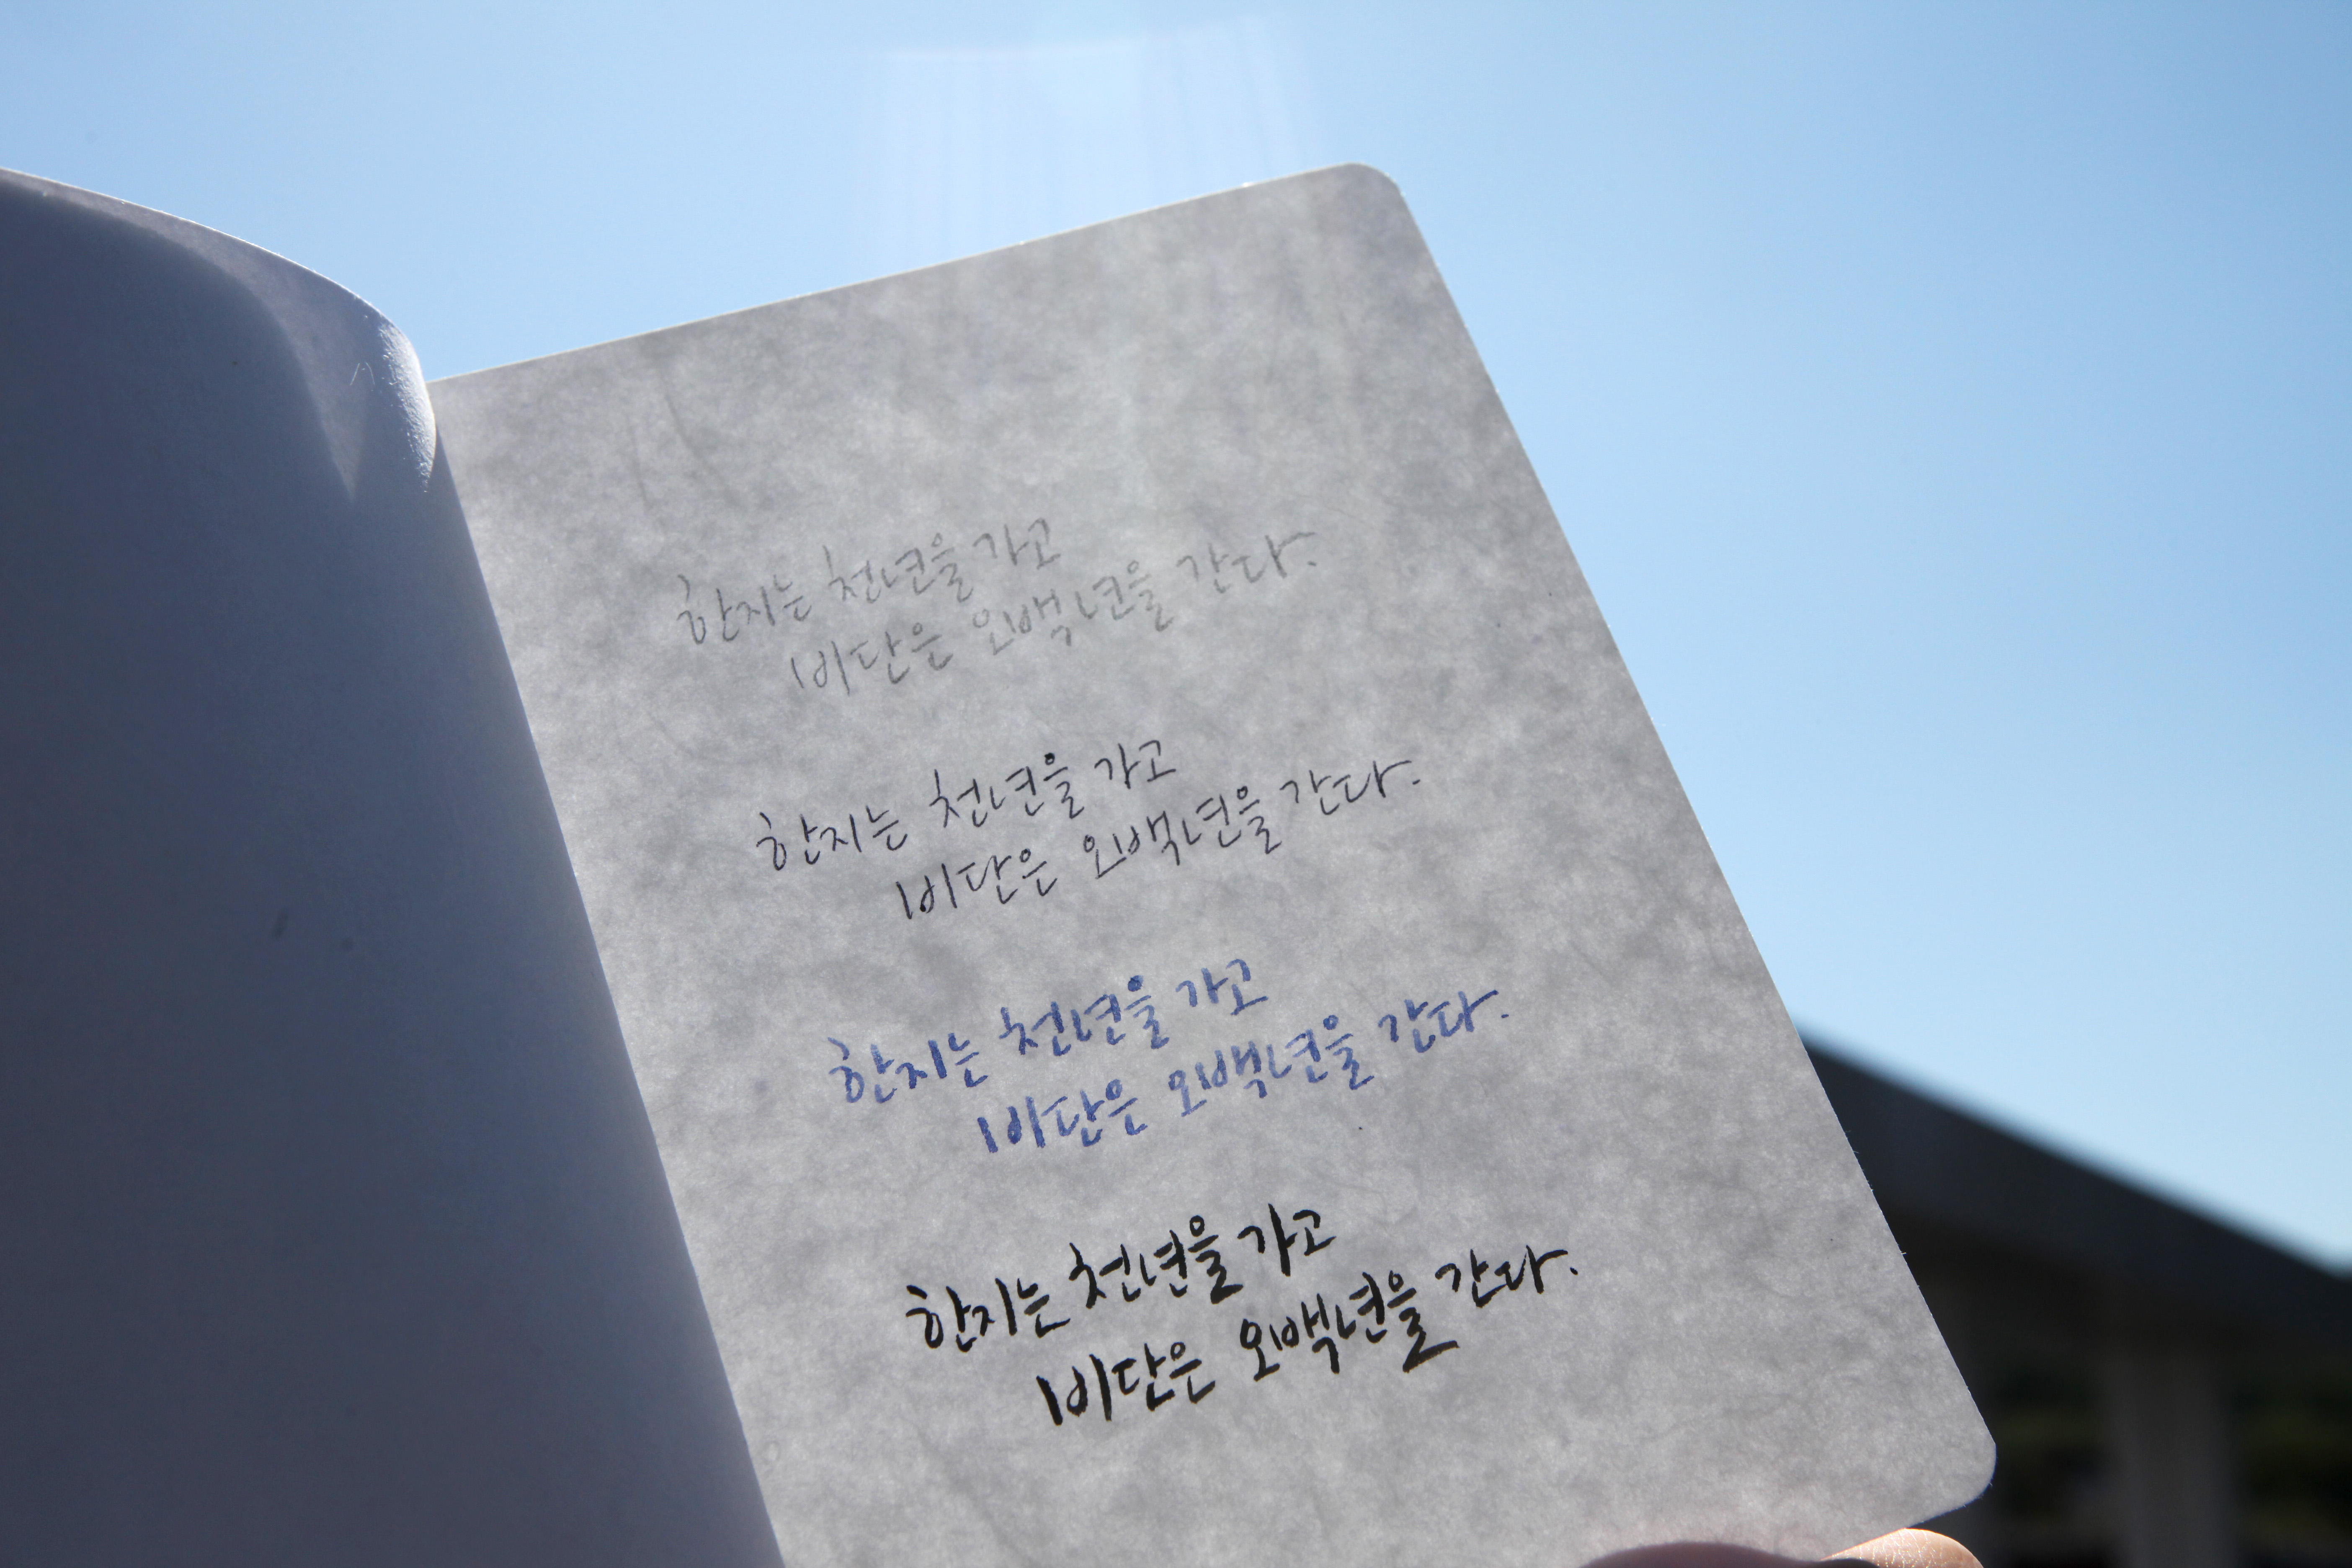 한지는 천년을 가고
비단은 오백년을 간다.
한지는 천년을 가고
비단은 오백년을 간다.
한지는 천년을 가고
비단은 오백년을 간다.
한지는 천년을 가고
비단은 오백년을 간다.